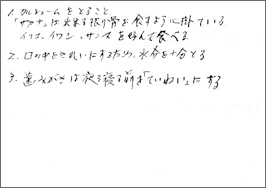 1. カルシュームをとること。
「サカナ」は出来る限り骨も食すよう心掛ている。
イワシ、サンマを好んで食べる
2. 口の中をきれいにするため、水分を十分とる
3. 歯みがきは夜寝る前「ていねい」にする